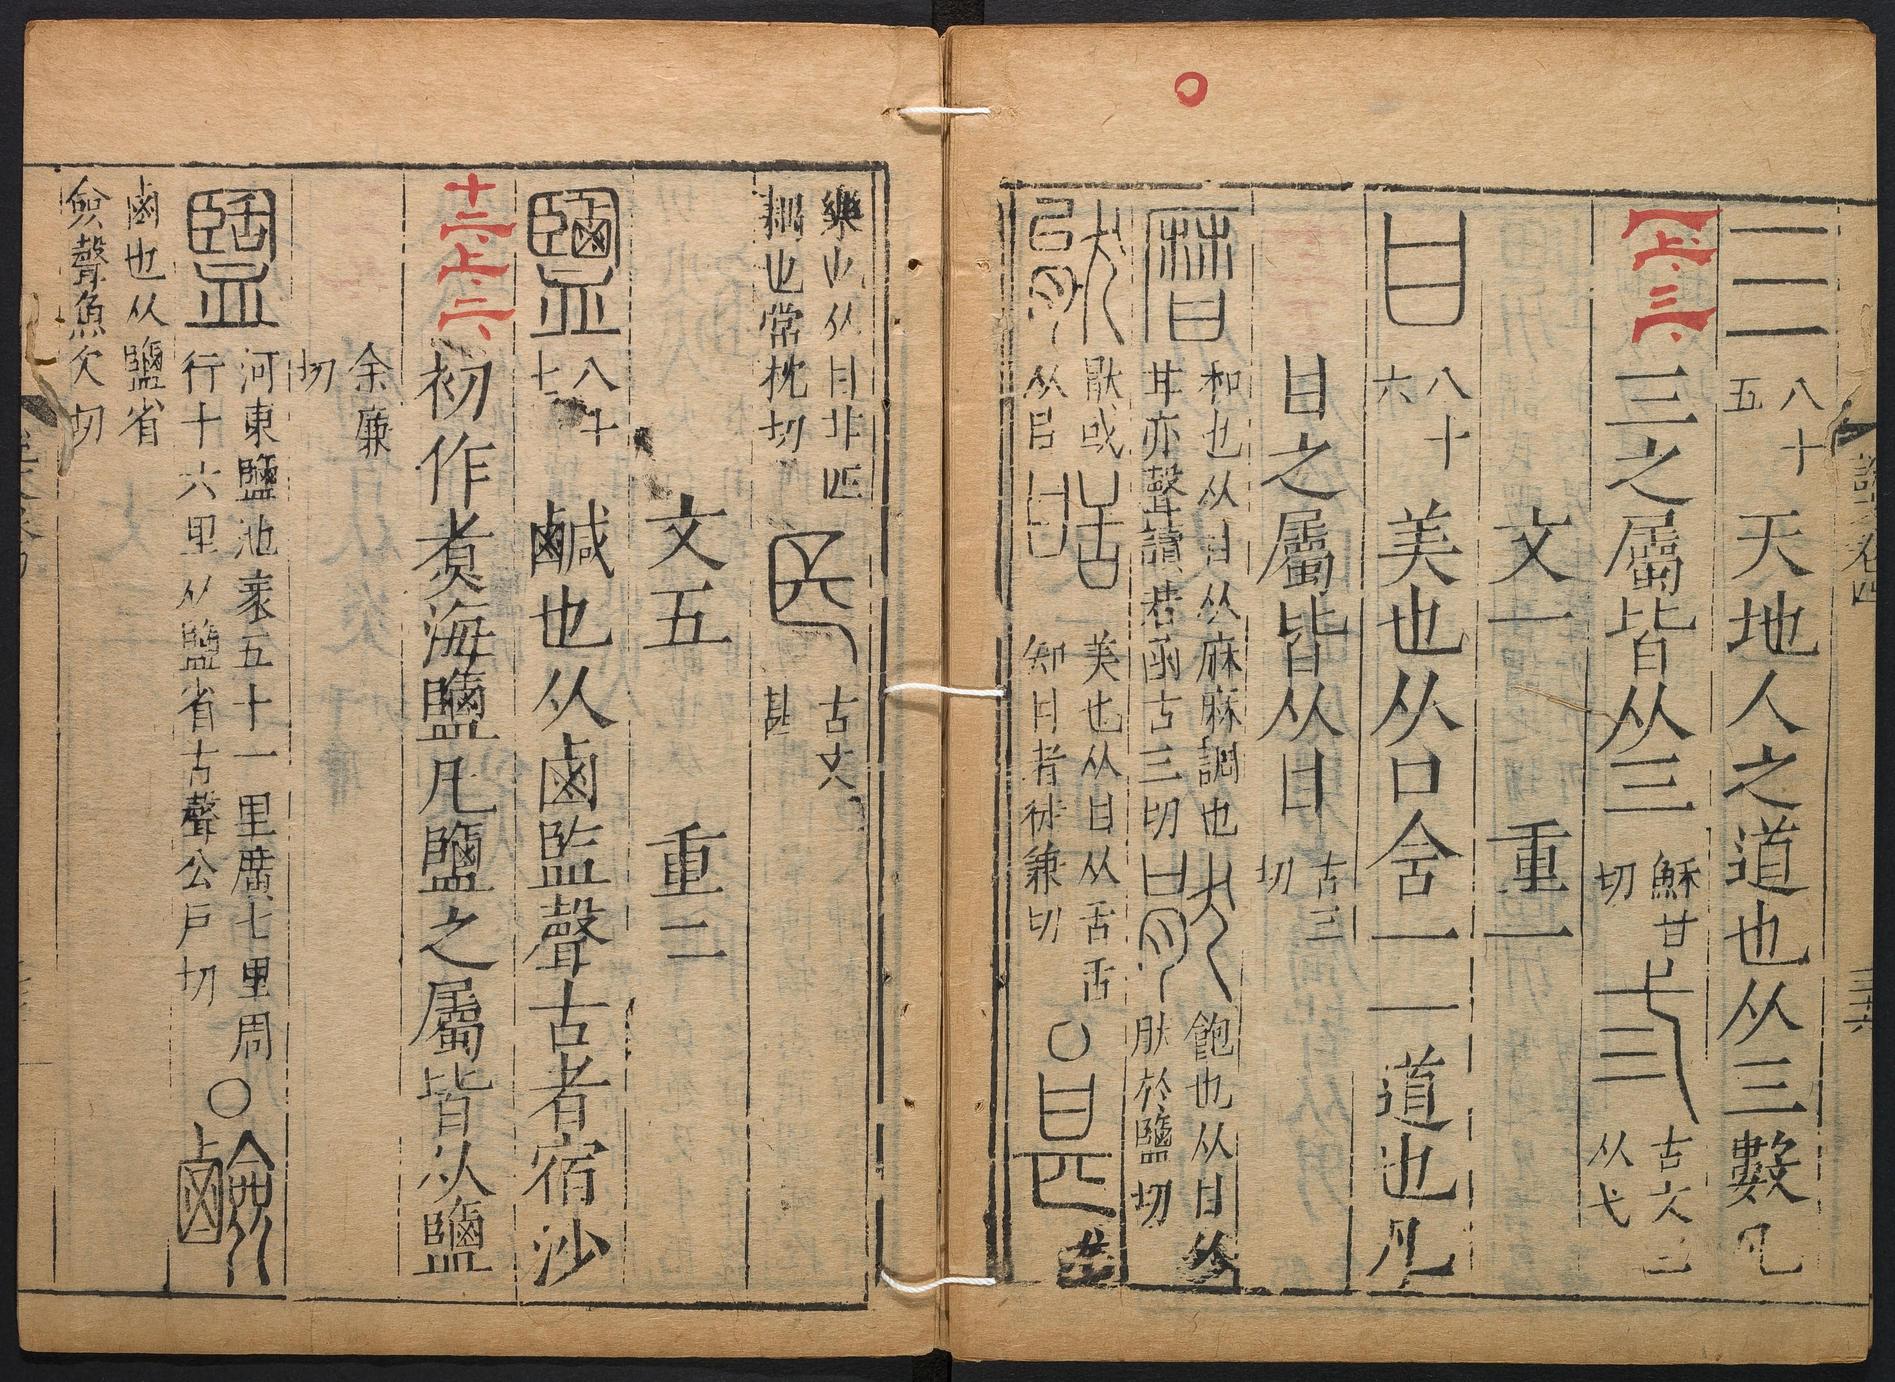 三 八十五 天地人之道也从三數凡
三之屬皆从三 穌甘切 弎 古文三从弋
【上、三、】
文一 重一
甘 八十六 美也从口含一一道也凡
甘之屬皆从甘 古三切
和也从甘从麻麻調也甘亦聲讀若函古三切 猒 飽也从甘从肰於鹽切
猒或从㠯 甛 美也从甘从舌舌知甘者徒兼切 ○ 甚 尤
樂也从甘非匹耦也常枕切 古文甚
文五 重二
鹽 八十七 鹹也从鹵監聲古者宿沙
初作煑海鹽凡鹽之屬皆从鹽
十二、上、二、
余廉切
盬 河東鹽池袤五十一里廣七里周行十六里从鹽省古聲公戶切 ○ 鹼
鹵也从鹽省僉聲魚欠切
說文卷四
三十六